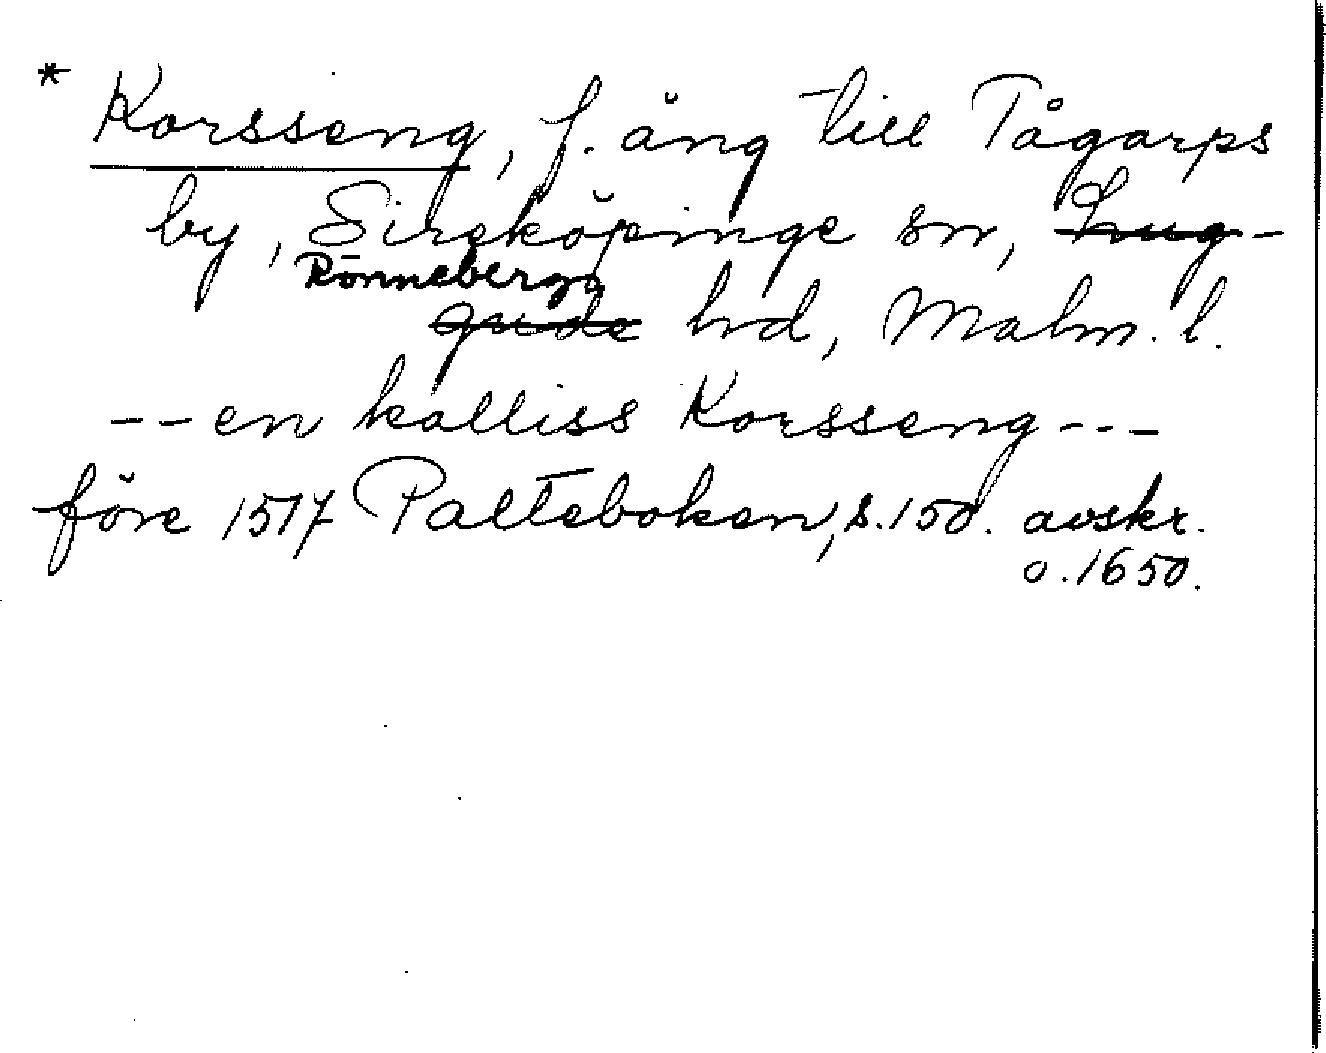 * Korsseng, f. äng till Tågarps
by, Sireköpinge sn, Lug-
Rönnebergs
gude hd, Malm. l.
-- en kalliss Korsseng ---
före 1517 Palteboken, s. 150. avskr.
o. 1650.